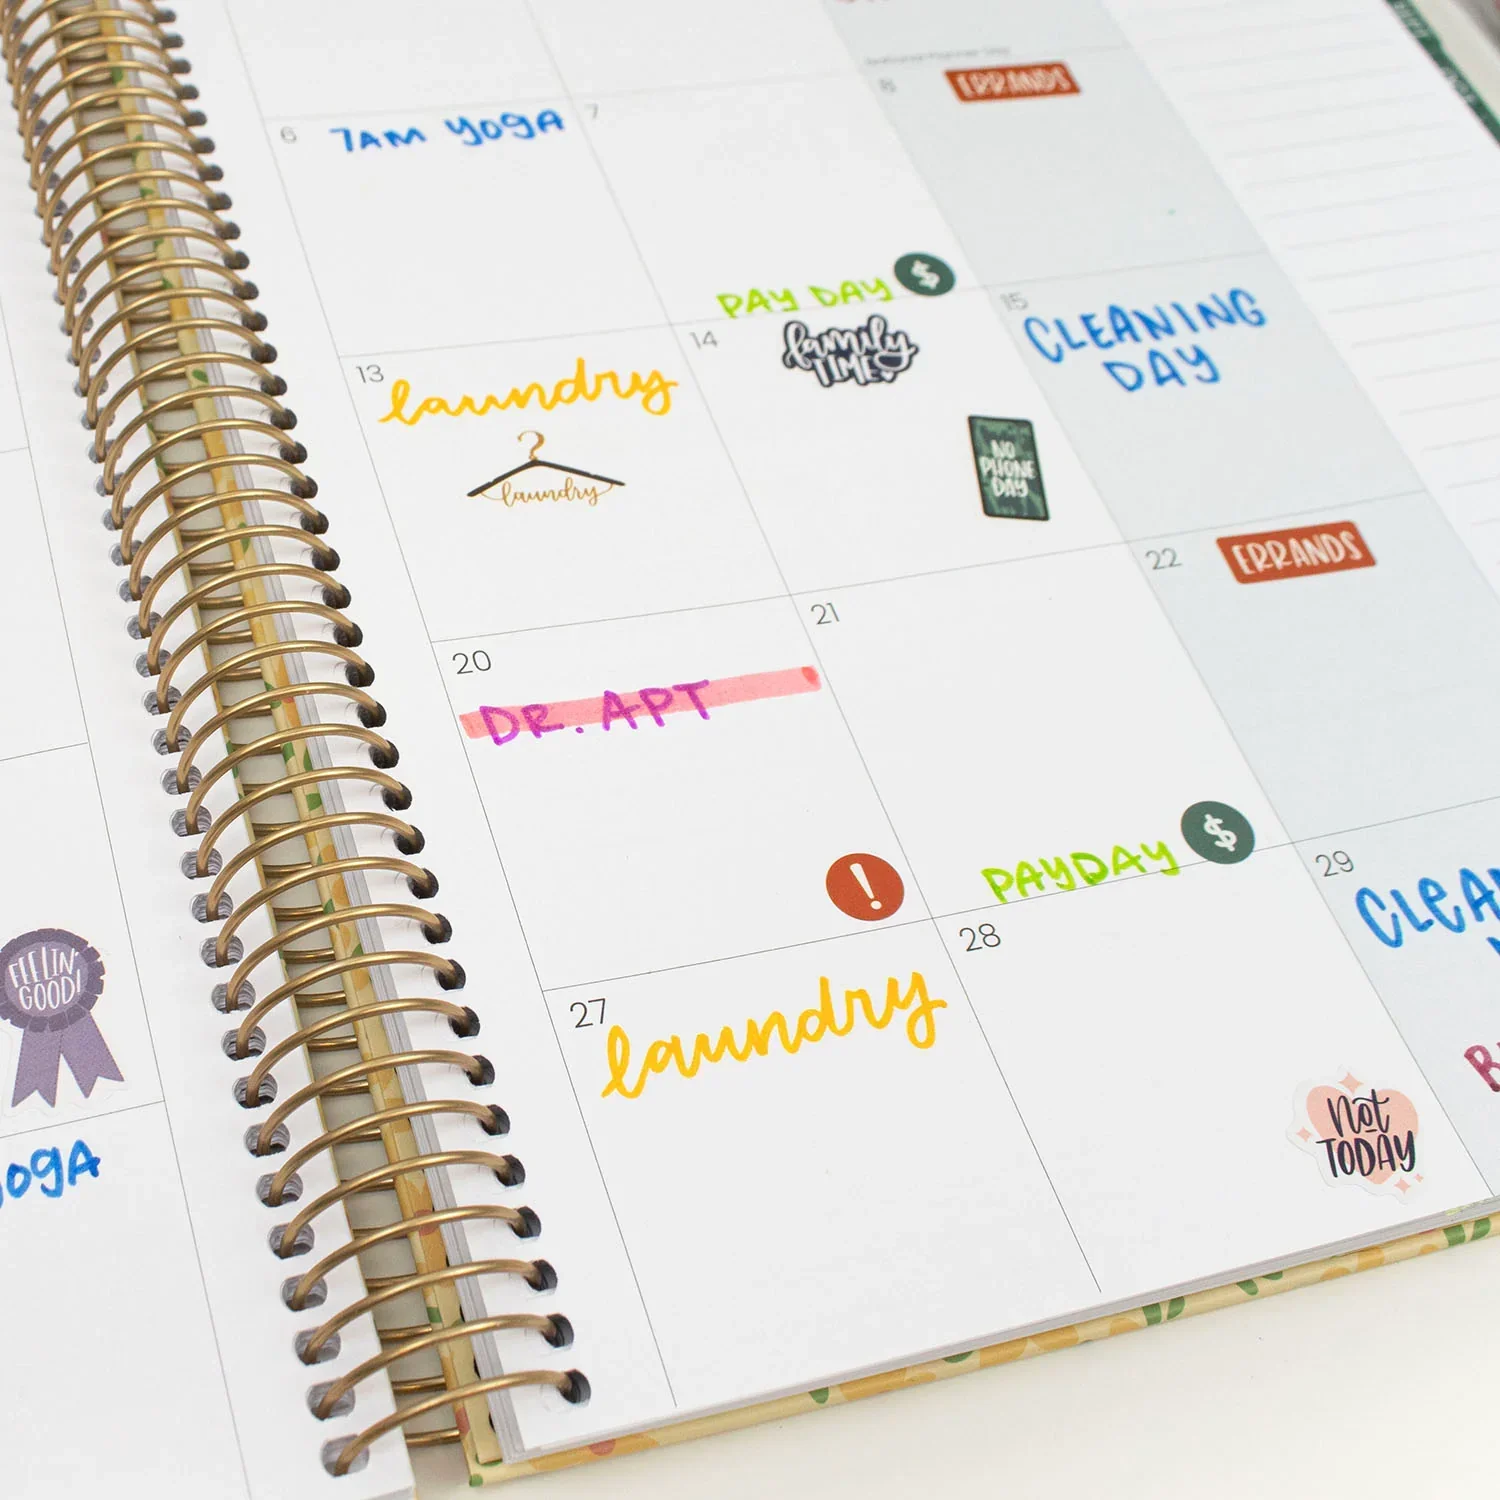 6
7AM YOGA
7
8
ERRANDS
PAY DAY
$
13
laundry
laundry
14
family
TIME
NO
PHONE
DAY
15
CLEANING
DAY
20
DR. APT
!
21
PAYDAY
$
22
ERRANDS
FEELIN'
GOOD!
27
laundry
28
Not
TODAY
29